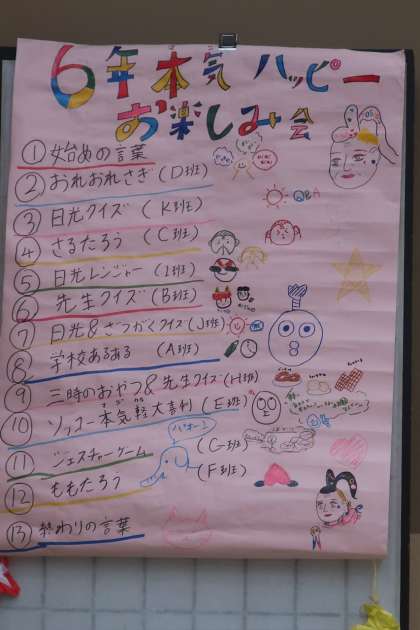 6年本気ハッピー
お楽しみ会
① 始めの言葉
② おれおれさぎ (D班)
③ 日光クイズ (K班)
④ さるたろう (C班)
⑤ 日光レンジャー (I班)
⑥ 先生クイズ (B班)
⑦ 日光&ざつがくクイズ (J班)
⑧ 学校あるある (A班)
⑨ 三時のおやつ&先生クイズ (H班)
⑩ ソッコー本気軽大喜利 (E班)
⑪ ジェスチャーゲーム (G班)
⑫ ももたろう (F班)
⑬ 終わりの言葉